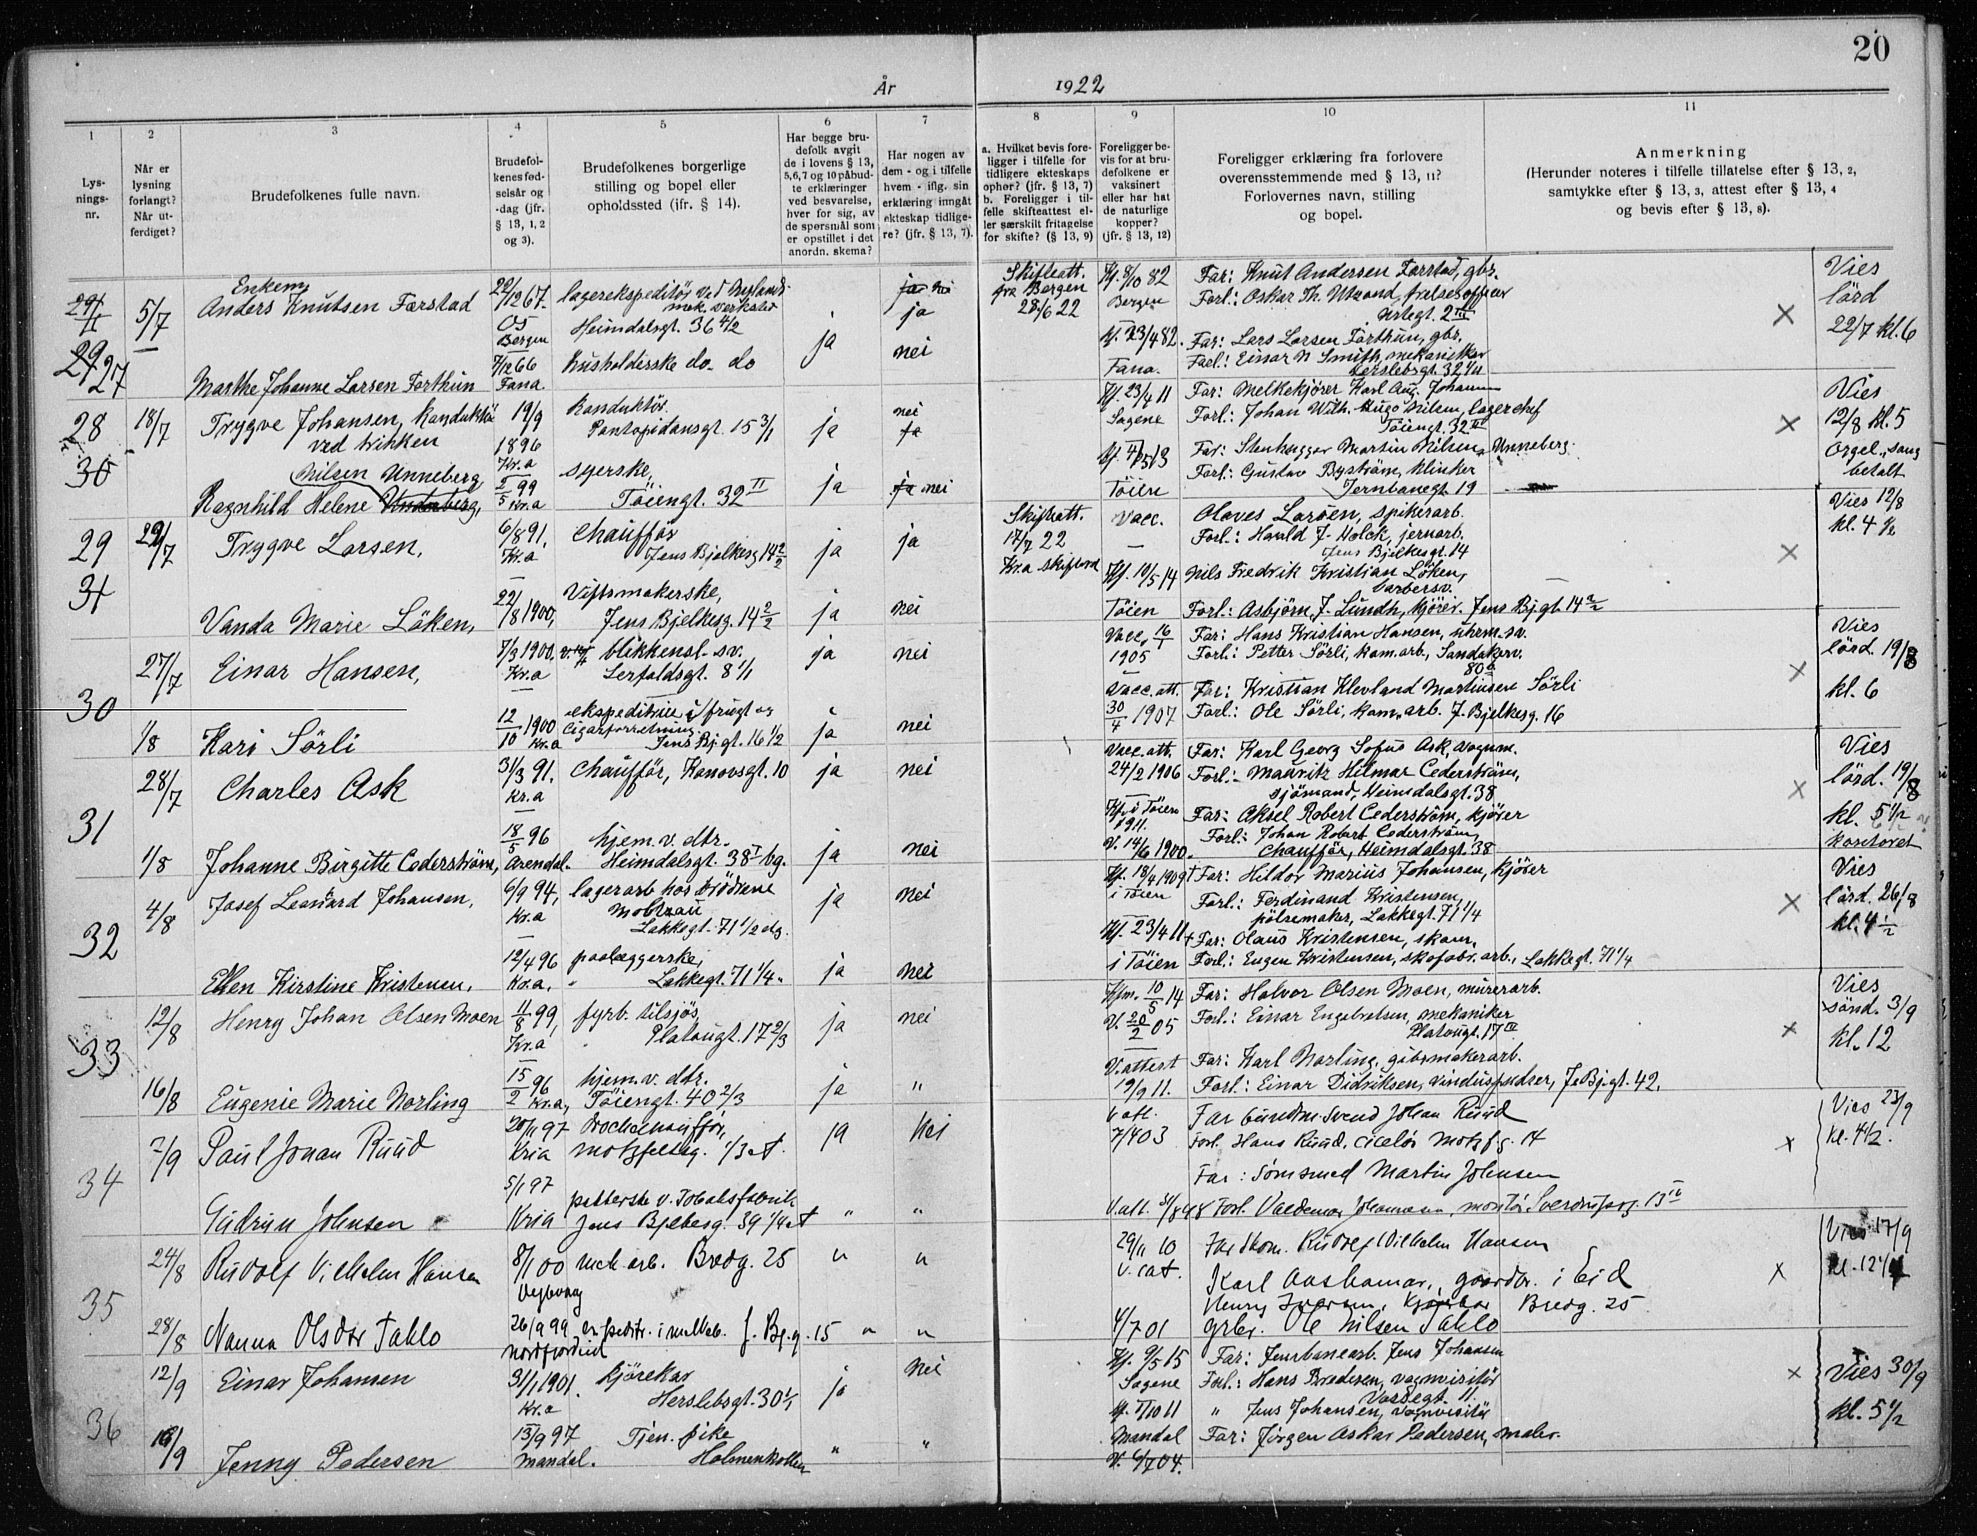 20
År 1922
1
Lys-
nings-
nr.
2
Når er
lysning
forlangt?
Når ut-
ferdiget?
3
Brudefolkenes fulle navn.
4
Brudefol-
kenes fød-
selsår og
-dag (jfr.
§ 13, 1, 2
og 3).
5
Brudefolkenes borgerlige
stilling og bopel eller
opholdssted (jfr. § 14).
6
Har begge bru-
defolk avgit
de i lovens § 13,
5,6,7 og 10 påbud-
te erklæringer
ved besvarelse,
hver for sig, av
de spørsmål som
er opstillet i det
anordn. skema?
7
Har nogen av
dem - og i tilfelle
hvem - iflg. sin
erklæring inngåt
ekteskap tidlige-
re? (jfr. § 13, 7).
8
a. Hvilket bevis fore-
ligger i tilfelle for
tidligere ekteskaps
ophør? (jfr. § 13, 7)
b. Foreligger i til-
felle skifteattest el-
ler særskilt fritagelse
for skifte? (§ 13, 9)
9
Foreligger be-
vis for at bru-
defolkene er
vaksinert
eller har hat
de naturlige
kopper?
(jfr. § 13, 12)
10
Foreligger erklæring fra forlovere
overensstemmende med § 13, 11?
Forlovernes navn, stilling
og bopel.
11
Anmerkning
(Herunder noteres i tilfelle tillatelse efter § 13, 2,
samtykke efter § 13, 3, attest efter § 13, 4
og bevis efter § 13, 8).
27
5/7
Enkem.
Anders Knutsen Færstad
22/12 67.
Bergen
lagerekspeditør ved
mek. verksted
Heimdalsgt. 36 4/2
ja
ja nei
ja
Skifteatt.
fra Bergen
28/6 22
Kf. 8/10 82
Bergen
Far: Knut Andersen Færstad, gbr.
Forl: Oskar Th. Utrand, frelsesofficer
Urtegt. 2 III
×
Vies
lörd
22/7 kl. 6
Marthe Johanne Larsen Forthun
7/12 66
Fana.
husholderske do. do
nei
V. 23/4 82.
Fana.
Far: Lars Larsen Forthun, gbr.
Forl: Einar N Smith, mekaniker
Herslebsgt. 32
28
30
18/7
Trygve Johansen, konduktör
ved trikken
19/9
1896
Kr.a
Konduktör.
Pontopidansgt. 15 3/1
ja
nei
ja
Kf. 23/4 11
Sagene
Far: Melkekjører Karl Aug. Johansen
Forl: Johan Wilh. Hugo Nilsen, lagerchef
Töiengt. 32 III
×
Vies
12/8 kl. 5
Orgel, sang
betalt
Nilsen Unneberg
Ragnhild Helene Unneberg,
2/5 99
Kr.a
syerske,
Töiengt. 32 II
ja
ja nei
Töien
Far: Stenhugger Martin Nilsen Unneberg.
Forl: Gustav Byström, klinker
Jernbanegt. 19
29
31
29/7
Trygve Larsen,
6/8 91.
Kr.a
Chaufför
Jens Bjelkesg 14 2/2
ja
ja
Skifteatt.
17/7 22
Kr.a skifteret
Vacc.
Olaves Larsen, spikerarb.
Forl: Harald J. Holck, jernarb.
Jens Bjelkesgt. 14
×
Vies 12/8
kl. 4 ½
Vanda Marie Löken,
22/8 1900,
Viftemakerske,
Jens Bjelkesg. 14 2/2
ja
nei
Kf. 10/5 14
Töien
Nils Fredrik Kristian Löken,
Forl: Asbjörn J. Lundh, kjörer. Jens Bj.gt. 14 2/2
30
27/7
Einar Hansen,
7/3 1900.
Kr.a
blikkensl. sv.
Serfaldsgt. 8 1/1
ja
nei
Vacc. 16/7
1905
Far: Hans Kristian Hansen, uhrm. sv.
Forl: Petter Sörli, kom.arb, Sandakerv.
80 a
×
Vies
lörd. 19/8
kl. 6
1/8
Kari Sörli
12/10 1900
Kr.a
ekspeditrice i frugt og
Cigarforretning,
Jens Bj.gt. 16 1/2
ja
nei
Vacc. att.
30/4 1907
Far: Kristian Klevland Martinsen Sörli
Forl: Ole Sörli, kom. arb. J. Bjelkesg. 16
31
28/7
Charles Ask
31/3 91.
Kr.a
Chaufför, Kanovsgt. 10
ja
nei
Vacc. att.
24/2 1906
Far: Karl Georg Sofus Ask, vognm.
Forl: Mauritz Hilmar Cederström,
sjömand, Heimdalsgt. 38
×
Vies
lörd. 19/8
kl. 5 1/2
kontoret
1/8
Johanne Birgitte Cederström,
18/5 96
Arendal.
hjem.v. dtr.
Heimdalsgt. 38 I bg.
ja
nei
Kf. i Töien
1911.
V. 14/6 1900.
Far: Aksel Robert Cederström, kjörer
Forl: Johan Robert Cederström,
Chaufför, Heimdalsgt. 38
32
4/8
Josef Leonard Johansen,
6/9 94,
Kr.a
lagerarb hos brödrene
Moltzau
Lakkegt. 71 1/2 dg.
ja
nei
Kf. 18/4 1909
i Töien
† Far: Hildor Marius Johansen, kjörer
Forl: Ferdinand Kristensen,
pölsemaker, Lakkegt. 71 1/4
×
Vies
lörd. 26/8
kl. 4 ½
Ellen Kirstine Kristensen,
12/4 96
Kr.a.
paalæggerske,
" Lakkegt. 71 1/4.
ja
nei
Kf. 23/4 11
i Töien
† Far: Olaus Kristensen, skom.
Forl: Eugen Kristensen, skofabr. arb., Lakkegt. 71 1/4
33
12/8
Henry Johan Olsen Moen
11/8 99,
Kr.a
fyrb. tilsjös,
" Platousgt. 17 2/3
ja
nei
Kfm. 10/5 14
V. 20/2 05
Far: Halvor Olsen Moen, murerarb.
Forl: Einar Engebretsen, mekaniker
Platousgt. 17 IV
×
Vies
sönd. 3/9
kl. 12
16/8
Eugenie Marie Norling
15/2 96
Kr.a,
hjem.v. dtr.
Töiengt. 40 2/3
ja
"
V. attest
19/9 11.
Far: Karl Norling, gibsmakerarb.
Forl: Einar Didriksen, vinduspudser, J. Bj.gt. 42.
34
7/9
Paul Johan Ruud
20/11 97
Kria
Drochechaufför,
Motzfeldtsg. 1/3
ja
Nei
v att.
7/4 03
Far Svend Johan Ruud
Forl. Hans Ruud, Motzf g. 14
×
Vies 23/9
kl. 4 1/2.
Gudrun Johnsen
5/1 97
Kria
pakkerske v. Tobaksfabrik
Jens Bjelkesg. 39 1/4
"
"
V. att. 31/8 98
Far: Sömsmed Martin Johnsen
Forl. Valdemar Johansen, montör Sverdrupsg. 13 IV
35
24/8
Rudolf Vilhelm Hansen
8/1 00
mek arb. Bredg. 25
"
"
29/11 10
v. cat.
Far Skom. Rudolf Vilhelm Hansen
Karl Aashamar, gaardbr. i Eid
Henry Iversen, Bredg. 25
×
Vies 17/9
kl. 12
28/8
Nanna Olsdtr Taklo
26/9 99
Nordfjordeid
J. Bj.g. 15
"
"
4/7 01
Grbr. Ole Nilsen Taklo
36
12/9
Einar Johansen
31/1 1901.
Kr.a
Kjörekar
Herslebsgt. 30 1/1
ja
nei
Kf. 9/5 15
Sagene
Far: Jernbanearb. Jens Johansen
Forl: Hans Bredesen, vognvisitör
Vossegt. 11.
" Jens Johansen, vognvisitör
×
Vies 30/9
kl. 5 ½
16/9
Jenny Pedersen
13/9 97
Mandal.
Tjen. pike
Holmenkollen
"
"
Kf. 1/10 11
Mandal
V. 6/7 04.
Far: Jørgen Oskar Pedersen, maler.